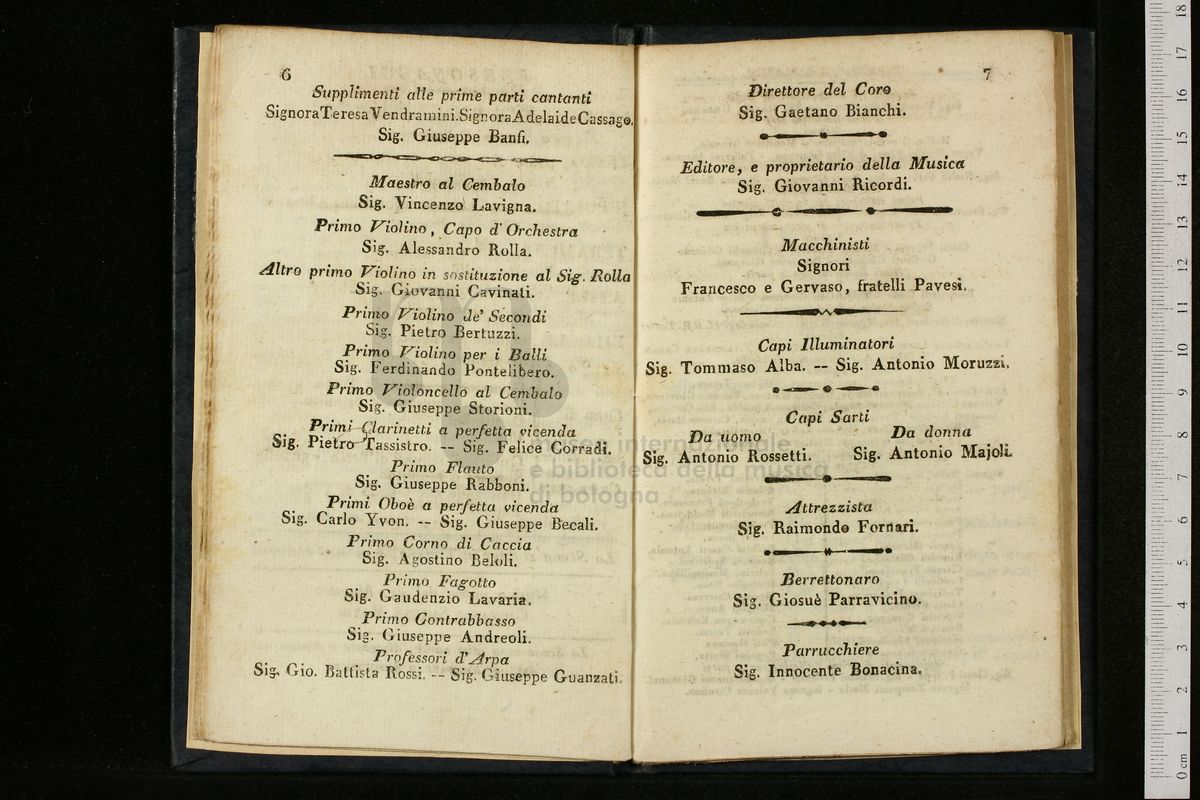 6
Supplimenti alle prime parti cantanti
Signora Teresa Vendramini. Signora Adelaide Cassago.
Sig. Giuseppe Banfi.
Maestro al Cembalo
Sig. Vincenzo Lavigna.
Primo Violino, Capo d'Orchestra
Sig. Alessandro Rolla.
Altro primo Violino in sostituzione al Sig. Rolla
Sig. Giovanni Cavinati.
Primo Violino de' Secondi
Sig. Pietro Bertuzzi.
Primo Violino per i Balli
Sig. Ferdinando Pontelibero.
Primo Violoncello al Cembalo
Sig. Giuseppe Storioni.
Primi Clarinetti a perfetta vicenda
Sig. Pietro Tassistro. -- Sig. Felice Corradi.
Primo Flauto
Sig. Giuseppe Rabboni.
Primi Oboè a perfetta vicenda
Sig. Carlo Yvon. -- Sig. Giuseppe Becali.
Primo Corno di Caccia
Sig. Agostino Beloli.
Primo Fagotto
Sig. Gaudenzio Lavaria.
Primo Contrabbasso
Sig. Giuseppe Andreoli.
Professori d'Arpa
Sig. Gio. Battista Rossi. -- Sig. Giuseppe Guanzati.
7
Direttore del Coro
Sig. Gaetano Bianchi.
Editore, e proprietario della Musica
Sig. Giovanni Ricordi.
Macchinisti
Signori
Francesco e Gervaso, fratelli Pavesi.
Capi Illuminatori
Sig. Tommaso Alba. -- Sig. Antonio Moruzzi.
Capi Sarti
Da uomo Da donna
Sig. Antonio Rossetti. Sig. Antonio Majoli.
Attrezzista
Sig. Raimondo Fornari.
Berrettonaro
Sig. Giosuè Parravicino.
Parrucchiere
Sig. Innocente Bonacina.
museo internazionale
e biblioteca della musica
di bologna
0 cm 1 2 3 4 5 6 7 8 9 10 11 12 13 14 15 16 17 18